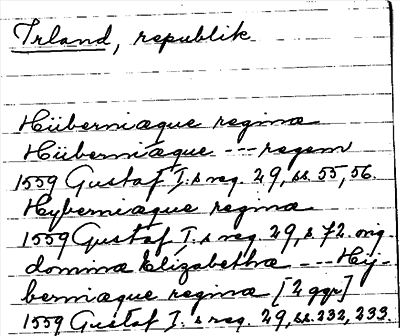 Irland, republik
Hüberniæque regina
Hüberniæque --- regem
1559 Gustaf I:s reg. 29, ss. 55, 56.
Hyberniæque regina
1559 Gustaf I:s reg. 29, s 72. orig.
domina Elizabetha --- Hy-
berniæque regina [2 ggr]
1559 Gustaf I:s reg. 29, ss. 232, 233.